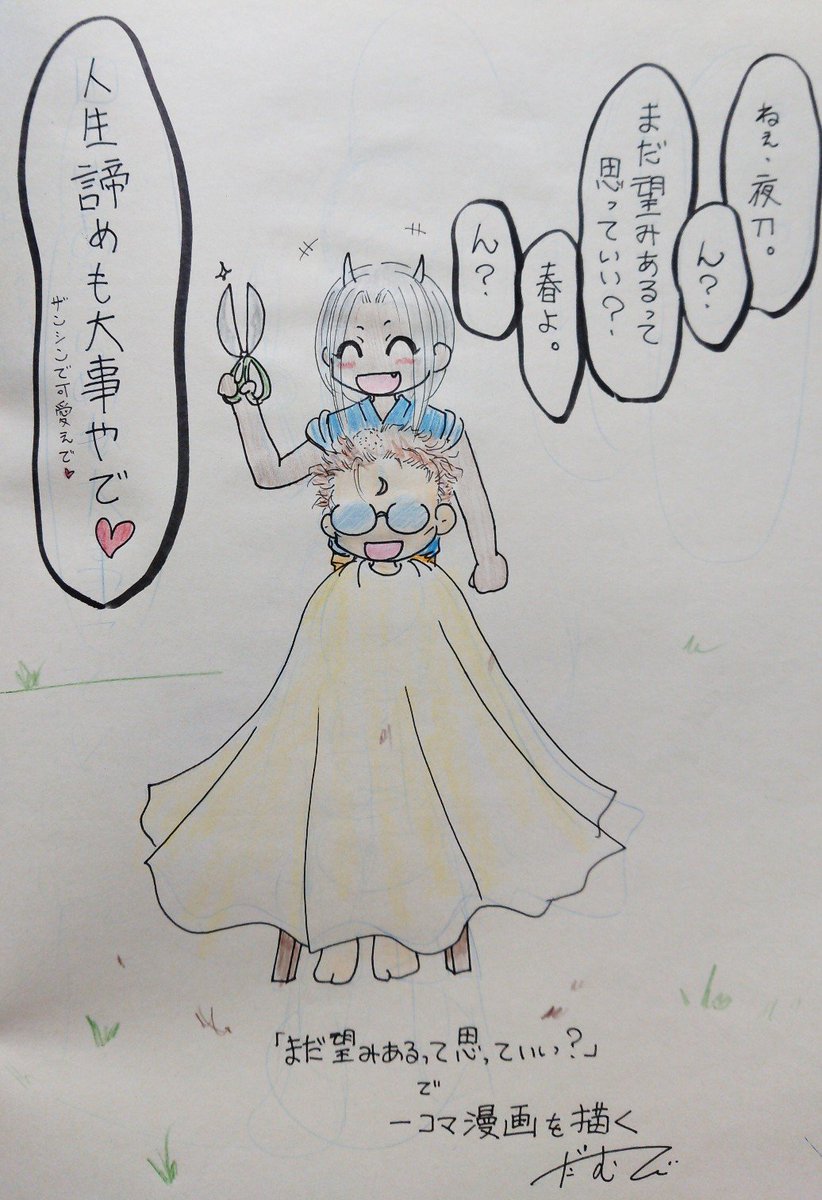 ねぇ、夜刀。
ん?
まだ望みあるって
思っていい?
春よ。
ん?
人生諦めも大事やで♥
ザンシンで可愛えで♥
「まだ望みあるって思っていい?」
で
一コマ漫画を描く
だむで